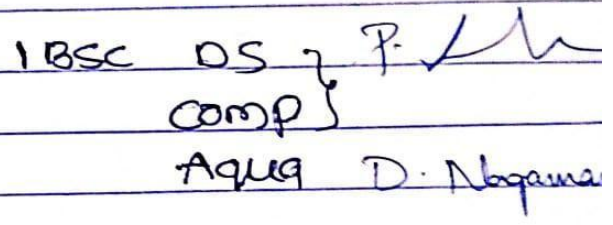 1 BSC DS } P.
COMP
Aqua D. Nagama